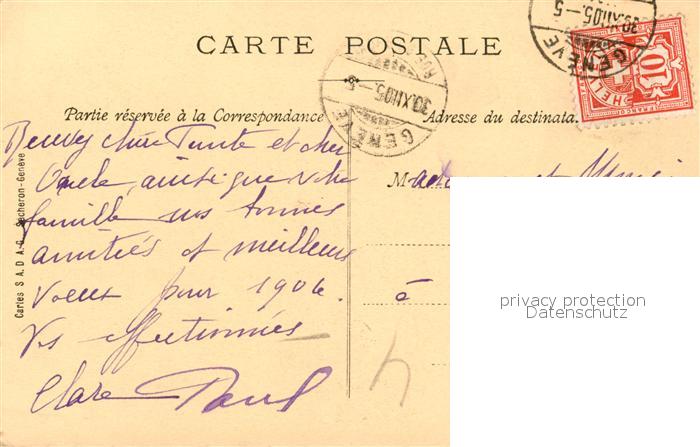 CARTE POSTALE
GENÈVE
30.XII.05.-5
10
HELVETIA
FRANCO
GENÈVE
30.XII.05.-5
Partie réservée à la Correspondance
Adresse du destinata
Recevez chère Tante et cher
Oncle, ainsi que votre
famille nos bonnes
amitiés et meilleurs
voeux pour 1906.
Vos affectionnés
Clare Paul
M et
à
4
Cartes S. A. D. A.-G. Secheron-Genève
privacy protection
Datenschutz